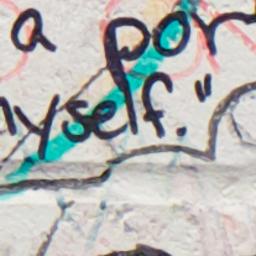 a por
yself."